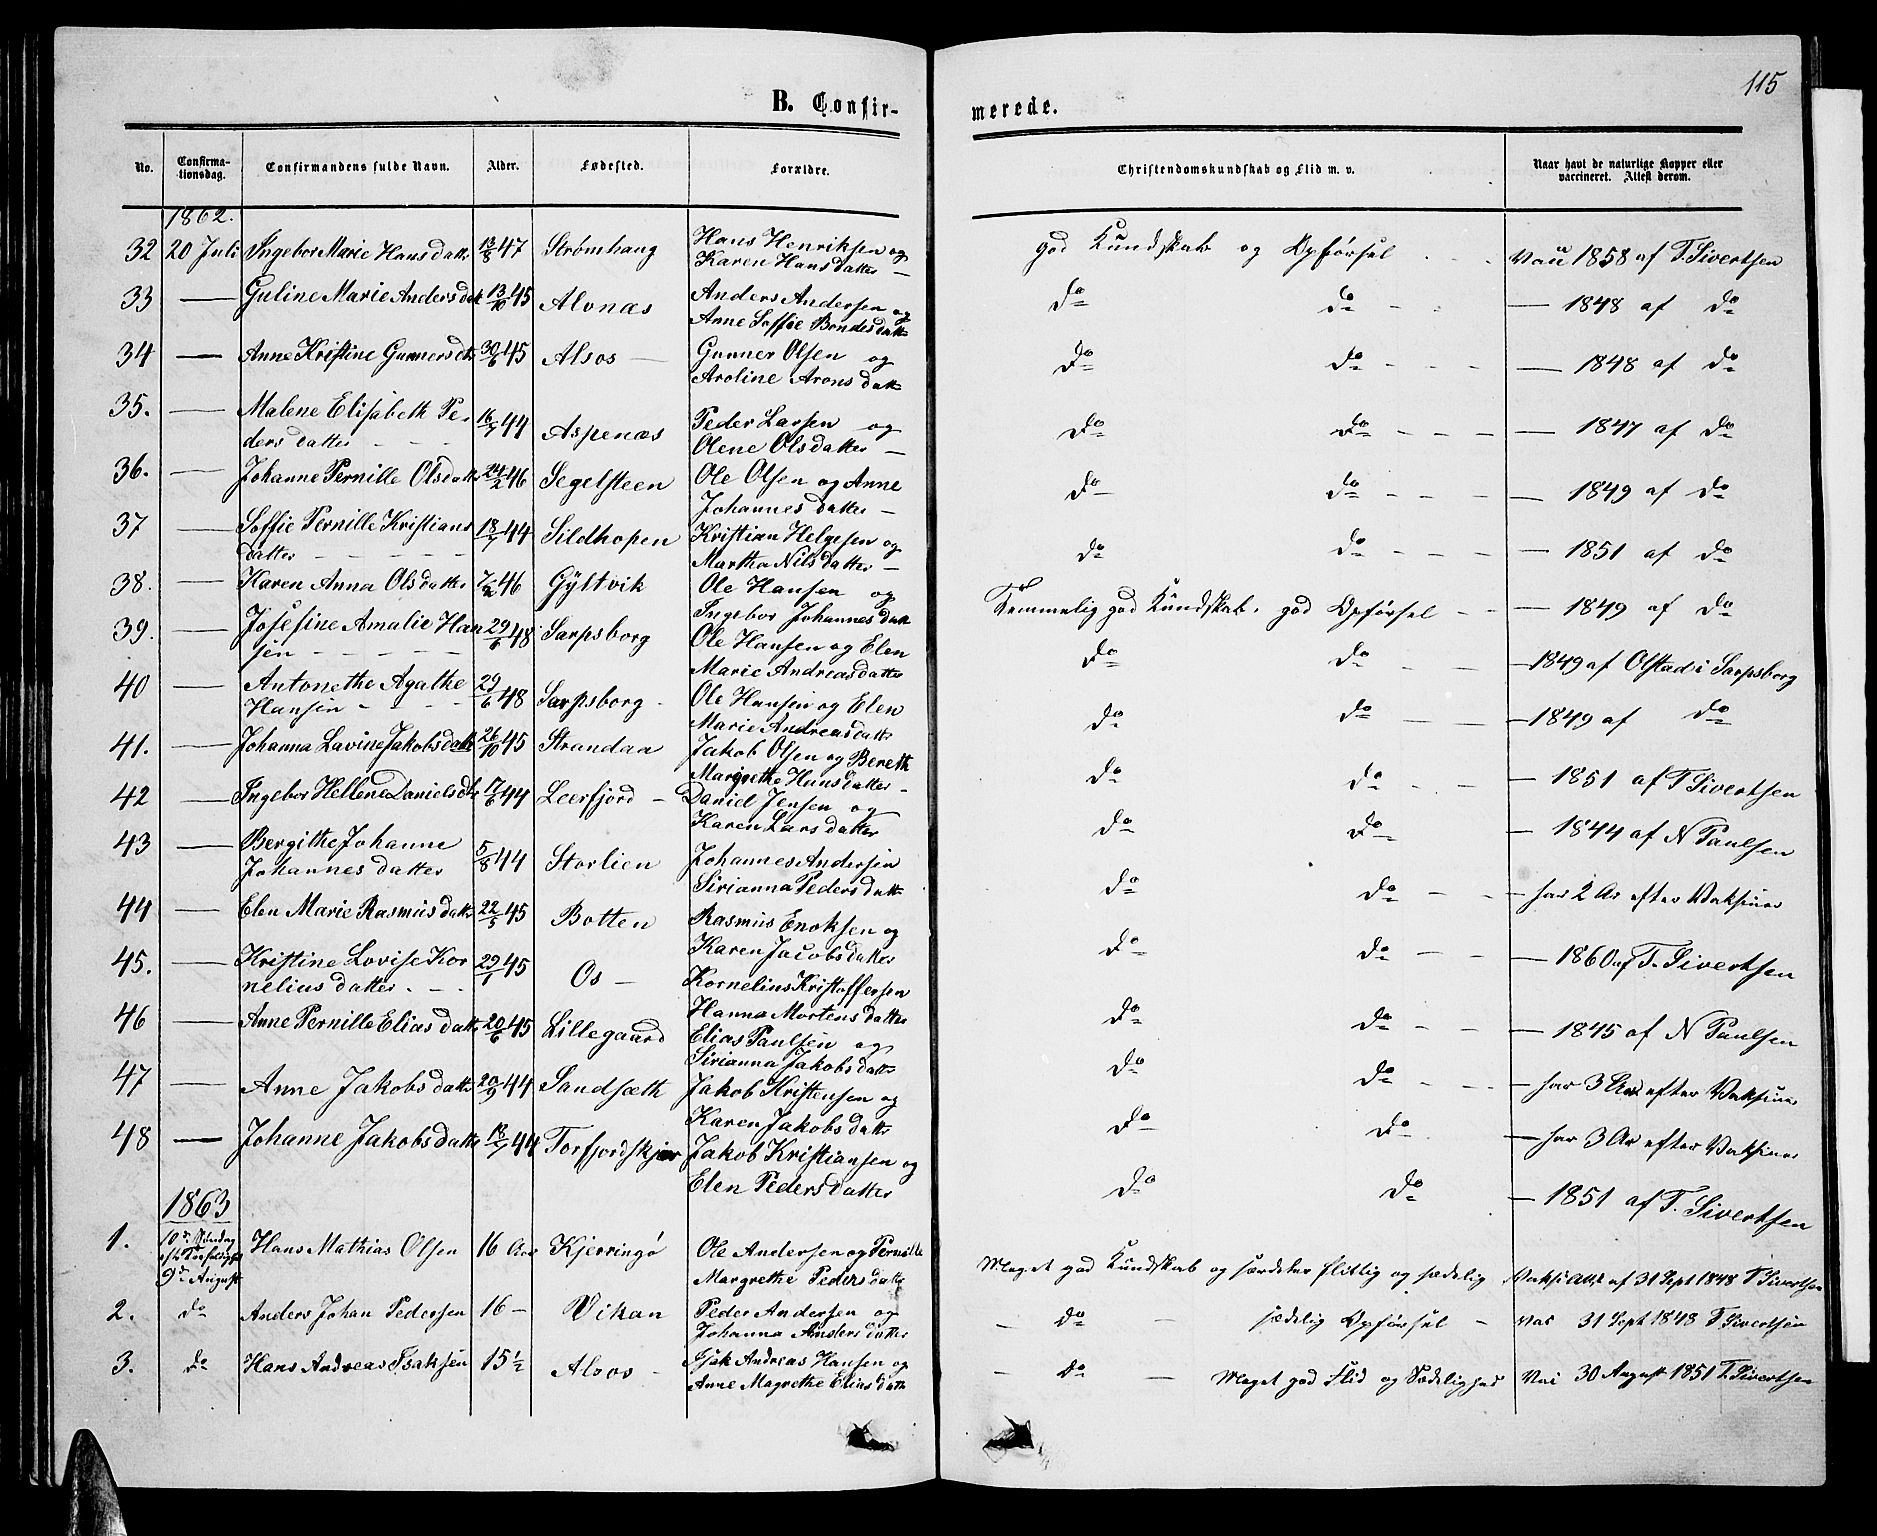 115
B. Confir-
merede.
No.
Confirma-
tionsdag.
Confirmandens fulde Navn.
Alder.
Fødested.
Forældre.
Christendomskundskab og Flid m. v.
Naar havt de naturlige Kopper eller
vaccineret. Attest derom.
1862.
32 20 Juli Ingebor Marie Hansdatter 13/8 47 Strømhaug Hans Henriksen og
Karen Hansdatter — god Kundskab og Opførsel - - - 1858 af T. Sivertsen
33 — Guline Marie Andersdatt 13/10 45 Alvnæs Anders Andersen og
Anne Soffie Bendesdatt do do - - — 1848 af do
34 — Anne Kristine Gunnersdtr 30/6 45 Alsos — Gunner Olsen og
Aroline Aronsdatt do do - - - — 1848 af do
35. — Malene Elisabeth Pe-
dersdatter - - - 16/7 44 Aspenæs Peder Larsen og
Olene Olsdatter — do do - - - — 1847 af do
36. — Johanne Pernille Olsdatter 24/2 46 Segelsteen Ole Olsen og Anne
Johannesdatter — do do - - - — 1849 af do
37 — Soffie Pernille Kristians
datter - - - - - 18/7 44 Sildhopen Kristian Helgesen og
Martha Nilsdatter — do do - - - — 1851 af do
38. — Karen Anna Olsdatter 7/2 46 Gyltvik Ole Hansen og
Ingebor Johannesdatt Temmelig god Kundskab, god Opførsel - - — 1849 af do
39. — Josefine Amalie Han
sen - - - - - 29/6 48 Sarpsborg Ole Hansen og Elen
Marie Andreasdatter do do - - — 1849 af Olstad i Sarpsborg
40 — Antonethe Agathe
Hansen - - - - 29/6 48 Sarpsborg - Ole Hansen og Elen
Marie Andreasdatter do do - - — 1849 af do
41. — Johanna Lavine Jakobsdatt 26/10 45 Strandaa Jakob Olsen og Bereth
Margrethe Hansdatter - do do - - — 1851 af T Sivertsen
42 — Ingebor Hellene Danielsdtr 17/6 44 Leerfjord - Daniel Jensen og
Karen Larsdatter do do — 1844 af N Paulsen
43 — Bergithe Johanne
Johannesdatter 5/8 44 Storlien Johannes Andersen
Sirianna Pedersdatt do do - - — har 2 Ar efter Vaksiner
44 — Elen Marie Rasmusdatter 22/5 45 Botten Rasmus Enoksen og
Karen Jacobsdatter do do - - — 1860 af T. Sivertsen
45. — Kristine Lovise Kor
neliusdatter. - - 29/1 45 Os — Kornelius Kristoffersen
Hanna Mortensdatter do do - - — 1845 af N Paulsen
46 — Anne Pernille Eliasdatt 20/6 45 Lillegaard Elias Paulsen og
Sirianna Jakobsdatt do do - - — har 3 efter Vaksiner
47 — Anne Jakobsdatter 20/9 44 Sandsæth Jakob Kristensen og
Karen Jakobsdatt do do. — har 3 Ar efter Vaksiner
48 — Johanne Jakobsdatt 18/7 44 Torfjordskjær Jakob Kristiansen og
Elen Pedersdatter do do — 1851 af T. Sivertsen
1863
1. 9de August Hans Mathias Olsen 16 Aar Kjerringø Ole Andersen og Pernille
Margrethe Pedersdatt Meget god Kundskab og særdeles flittig og sædelig af 31 Sept 1848 T Sivertsen
2. do Anders Johan Pedersen 16 — Vikan Peder Andersen og
Johanna Andersdatter — do — sædelig Opførsel - Vac 31 Sept 1848 T Sivertsen
3. do Hans Andreas Isaksen 15 1/2 Alsos - Isak Andreas Hansen og
Anne Magrethe Eliasdatt — do — Meget god Flid og Sædelighed Vac 30 August 1851 T. Sivertsen